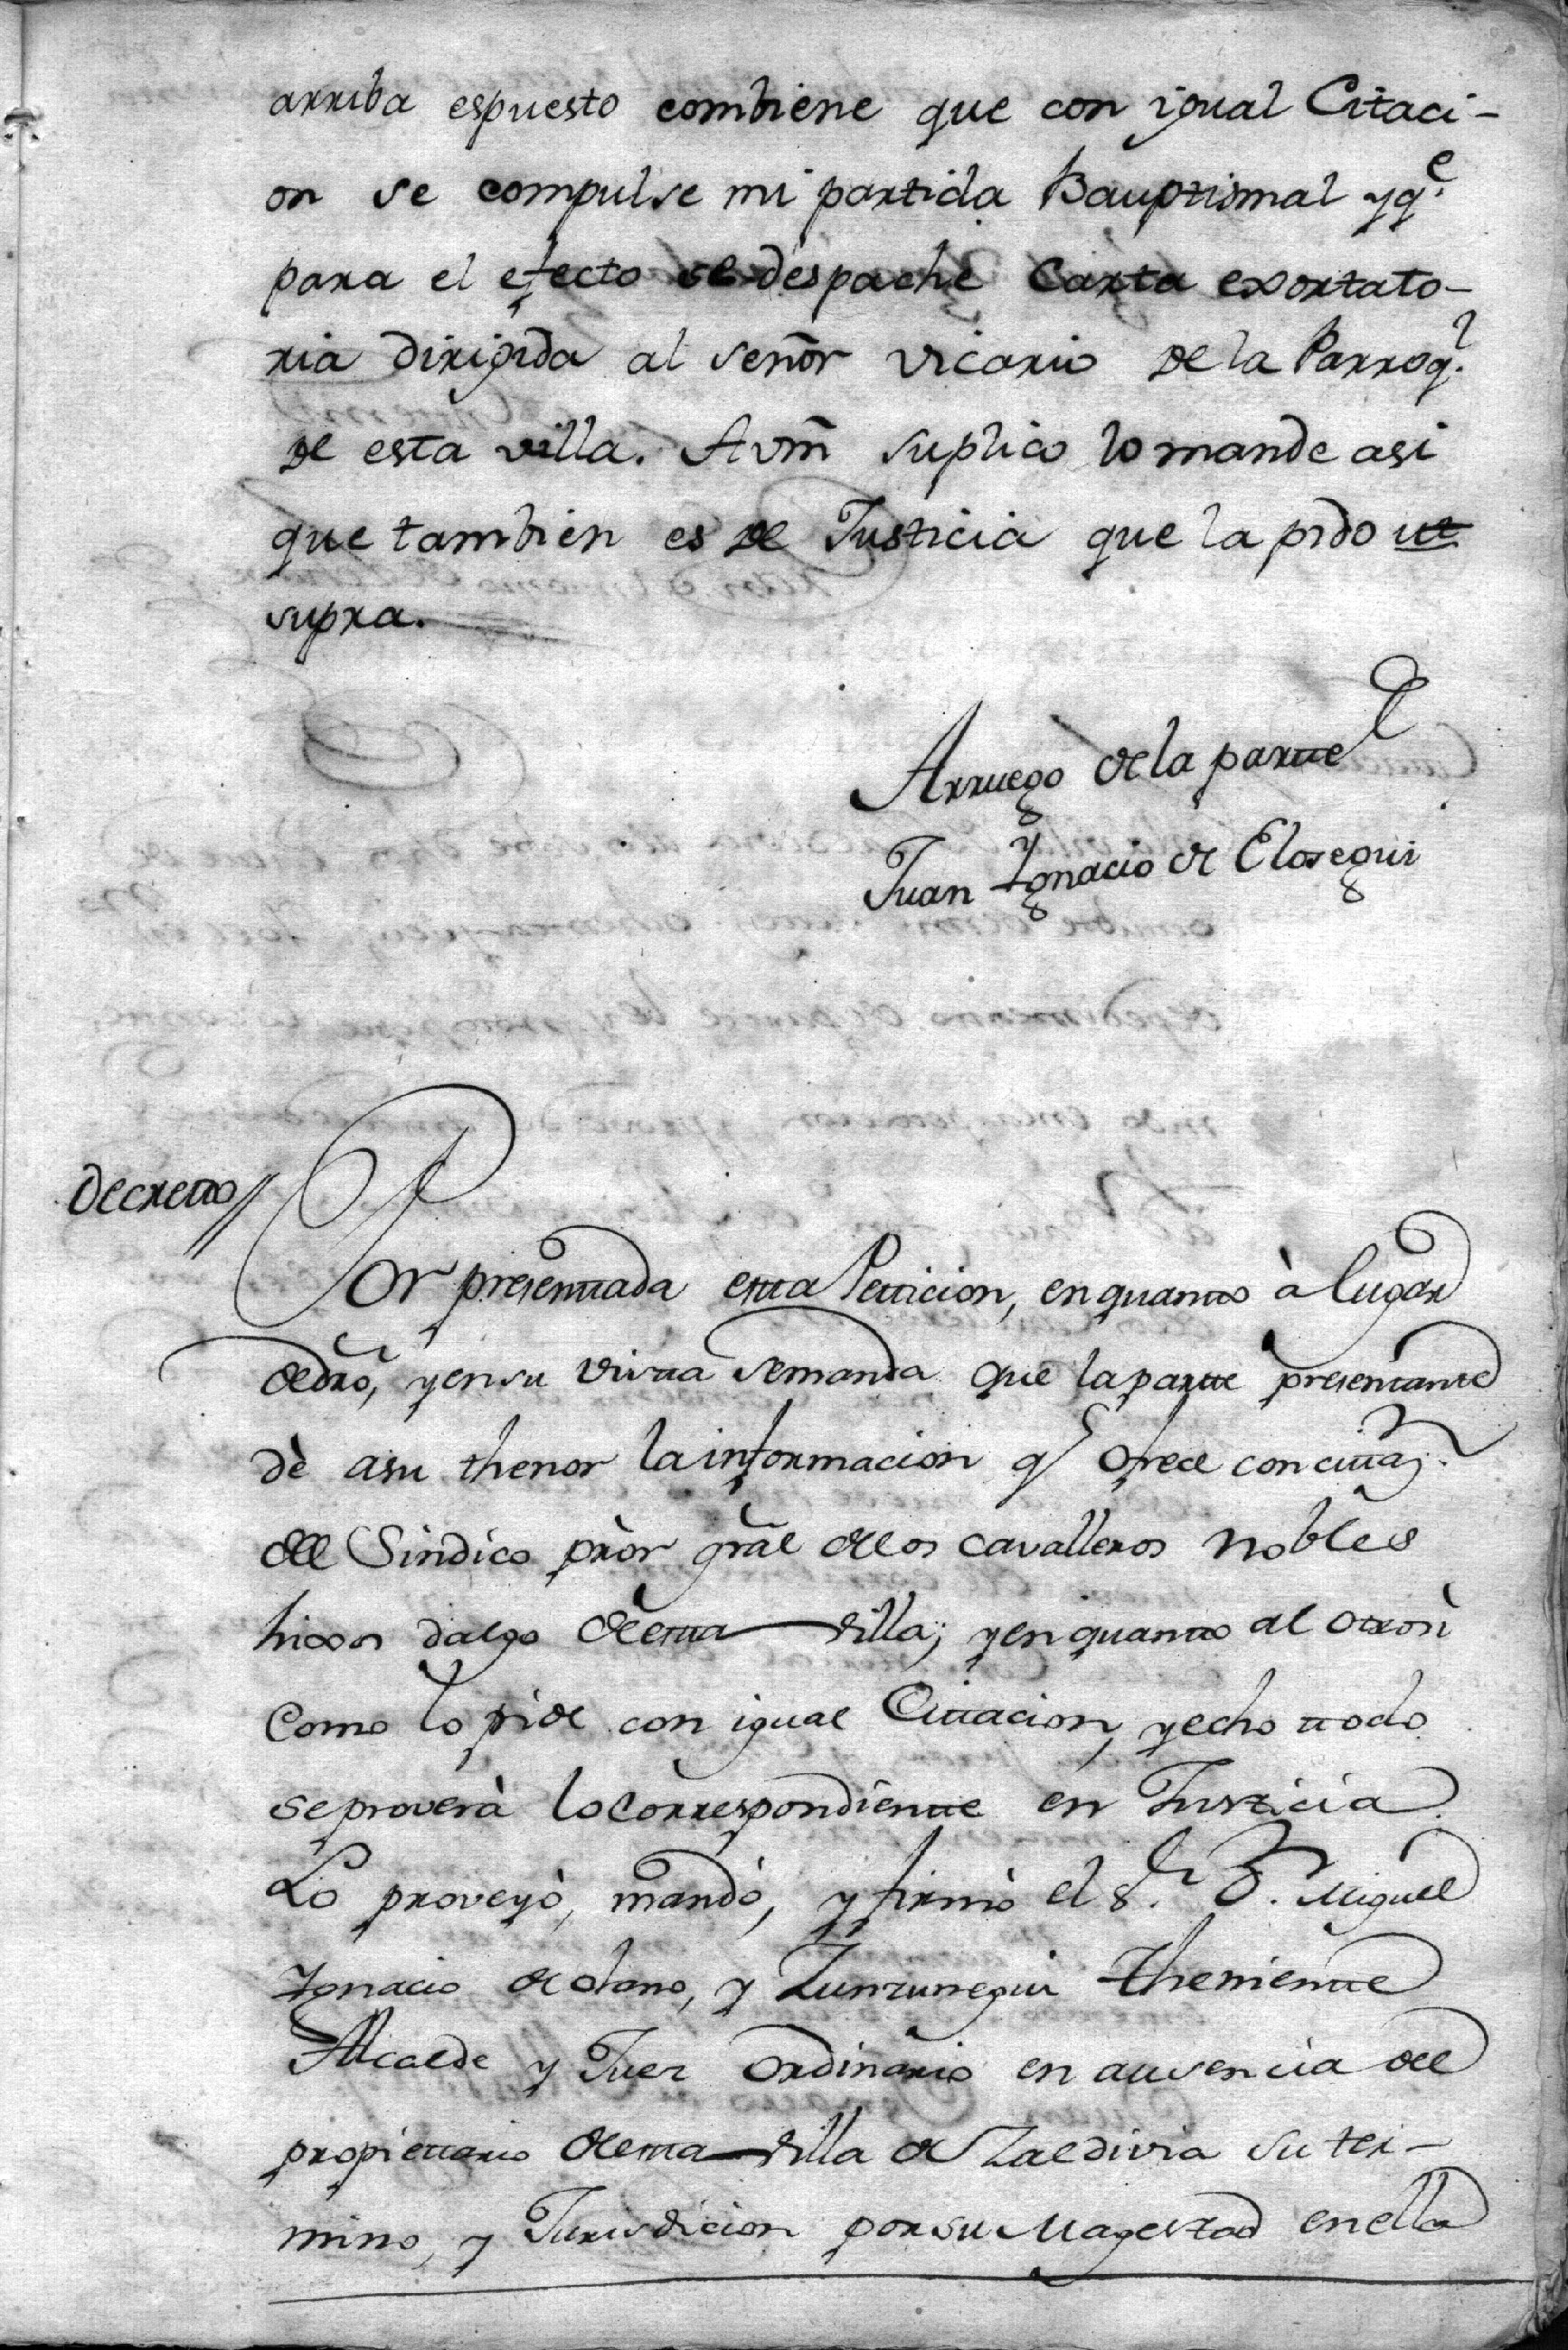 arriba espuesto combiene que con igual Citaci-
on se compulse mi partida Bauptismal yq.e
para el efecto se despache Carta exortato-
ria dirigida al señor vicario de la Parroq.l
de esta villa. Avm̃ suplico lo mande asi
que tambien es de Justicia que la pido ut
supra.
Arruego de la partte
Juan Ygnacio de Elosegui
Decretto //
Por presenttada estta Petticion, en quantto à lugar
dedro, yensu vistta semanda que la partte presentantte
dè asu thenor la informacion q.e ofrece con citta.n
del Sindico pror gral delos cavalleros nobles
hixos dalgo de estta Villa; yen quantto al otrosi
como lo pide con igual Cittacion, y echo ttodo
se proverà lo correspondientte en Justicia
Lo proveyò, mandò, y firmò el S.r D.n Miguel
Ygnacio de olano, y Zunzunegui thenientte
Alcalde y Juez ordinario en ausencia del
propiettario de estta Villa de Zaldivia su ter-
mino, y Jurisdicion por su Magestad en ella